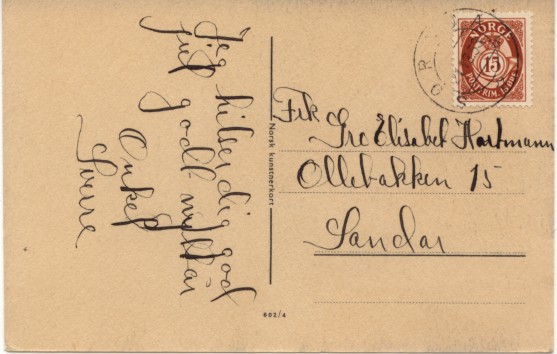 Jeg hilser dig god
jul godt nyttår
Onkel
Sverre
Norsk kunstnerkort
602/4
NORGE
15
POSTFRIM. 15 ØRE
Frk Gro Elisabet Hartmann
Ollebakken 15
Sandar